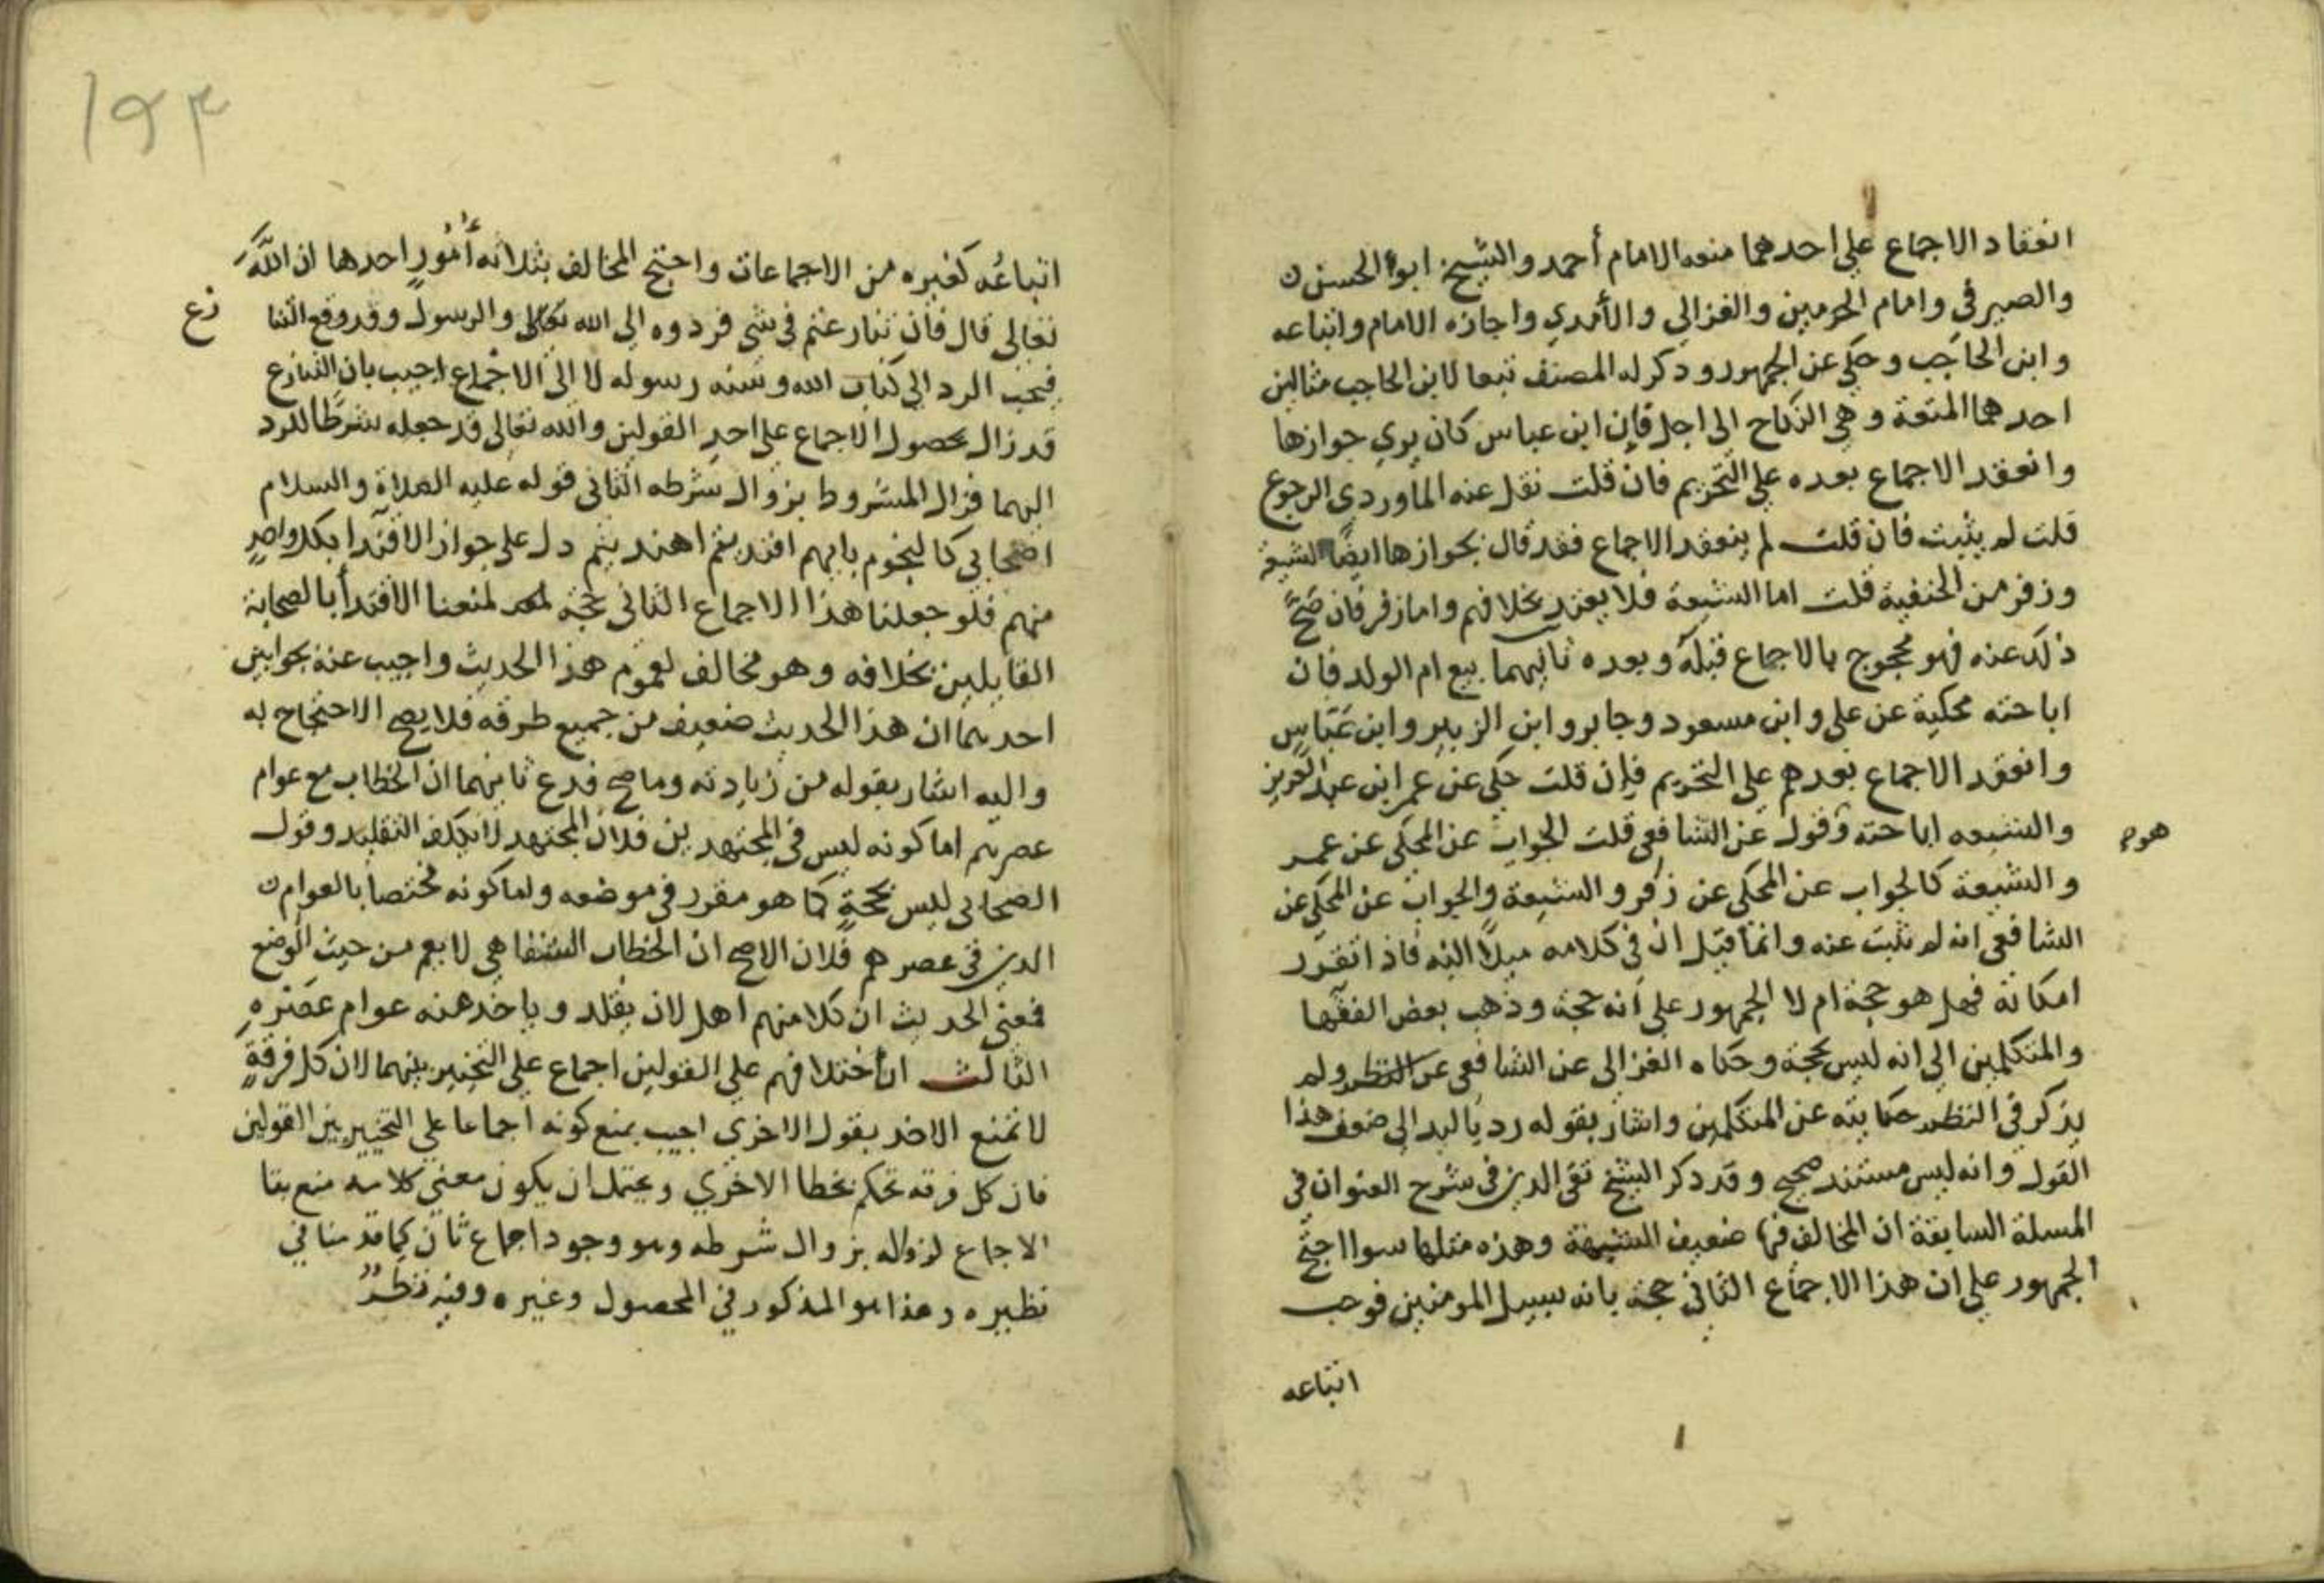 انعقاد الاجماع علي احدهما منعه الامام أحمد والشيخ ابوا الحسن
والصيرفي وامام الحرمين والغزالي والأمدي واجازه الامام واتباعه
وابن الحاجب وحكي عن الجمهور وذكر له المصنف تبعا لابن الحاجب مثالين
احدهما المتعة وهي النكاح الى اجل فإن ابن عباس كان يري جوازها
وانعقد الاجماع بعده علي التحريم فان قلت نقل عنه الماوردي الرجوع
قلت لم يثبت فان قلت لم ينعقد الاجماع فقد قال بجوازها ايضا الشيعة
وزفر من الحنفية قلت اما الشيعة فلا يعتد بخلافهم واما زفر فان صَحَّ
ذلك عنه فهو محجوج بالاجماع قبله وبعده ثانيهما بيع ام الولد فان
اباحته محكية عن على وابن مسعود وجابر وابن الزبير وابن عَبّاس
وانعقد الاجماع بعدهم علي التحريم فإن قلت حكي عن عمر ابن عبد العزيز
والشيعه اباحته وقول عن الشافعي قلت الجواب عن المحكي عن عمر
هو م
والشيعة كالجواب عن المحكي عن زفر والشيعة والجواب عن المحكي عن
الشافعي انه لم تثبت عنه وانما قيل ان في كلامه ميلاً اليه فاذا تقرر
امكانه فهل هو حجة ام لا الجمهور على أنه حجة وذهب بعض الفقها
والمتكلمين الي انه ليس بحجة وحكاه الغزالى عن الشافعي عن النظر ولم
يذكر في النظر حكايته عن المتكلمين واشار بقوله رديا ليد الي ضعف هذا
القول وانه ليس مستند صحيح وقد ذكر الشيخ تقى الدين في شرح العنوان في
المسلة السابقة ان المخالف فيها ضعيف الشبهة وهذه مثلها سوا احتج
الجمهور علي ان هذا الاجماع الثاني حجة بانه سبيل المومنين فوجب
اتباعه
اتباعُه كغيره من الاجماعات واحتج المخالف بثلاثه أُمُورٍ احدها ان اللّه
تعالى قال فان تنازعتم في شي فردوه الى الله تعالى والرسول وقد وقع التنا
زع
فيجب الرد الي كتاب الله وسنه رسوله لا الى الاجماع اجيب بان التنازع
قد زال بحصول الاجماع على احد القولين والله تعالى قد جعله شرطا للرد
اليهما فزال المشروط بزوال شرطه الثانى قوله عليه الصلاة والسلام
اصحابي كالنجوم بايهم اقتديتم اهتديتم دل على جواز الاقتدا بكل واحدٍ
منهم فلو جعلنا هذا الاجماع الثاني حجة لمنعنا الاقتدأ بالصحابة
القايلين بخلافه وهو مخالف لعموم هذا الحديث واجيب عنه بجوابين
احديهما ان هذا الحديث ضعيف من جميع طرقه فلا يصح الاحتجاج به
واليه اشار بقوله من زيادته وما صح فدع ثانيهما ان الخطاب مع عوام
عصرهم اما كونه ليس في المجتهدين فلان المجتهد لا يكلف التقليد وقول
الصحابى ليس بحجةٍ كما هو مقرر في موضعه ولما كونه مختصا بالعوام
الدين فى عصرهم فلان الاصح ان الخطاب الشفاهي لا يعم من حيث الوضع
فمعنى الحديث ان كلا منهم اهل لان يقلد وياخذ عنه عوام عَصْرِهِ
الثالث ان اختلافهم علي القولين اجماع علي التخيير بينهما لان كل فرقةٍ
لا تمنع الاخذ بقول الاخري اجيب بمنع كونه اجماعا علي التخيير بين القولين
فان كل فرقه تحكم بخطا الاخري ويحتمل ان يكون معني كلامه منع بقا
الاجاع لزواله بزوال شرطه وهو وجود اجماع ثان كما قدمنا في
نظيره وهذا هو المذكور في المحصول وغيره وفيه نظرٌ